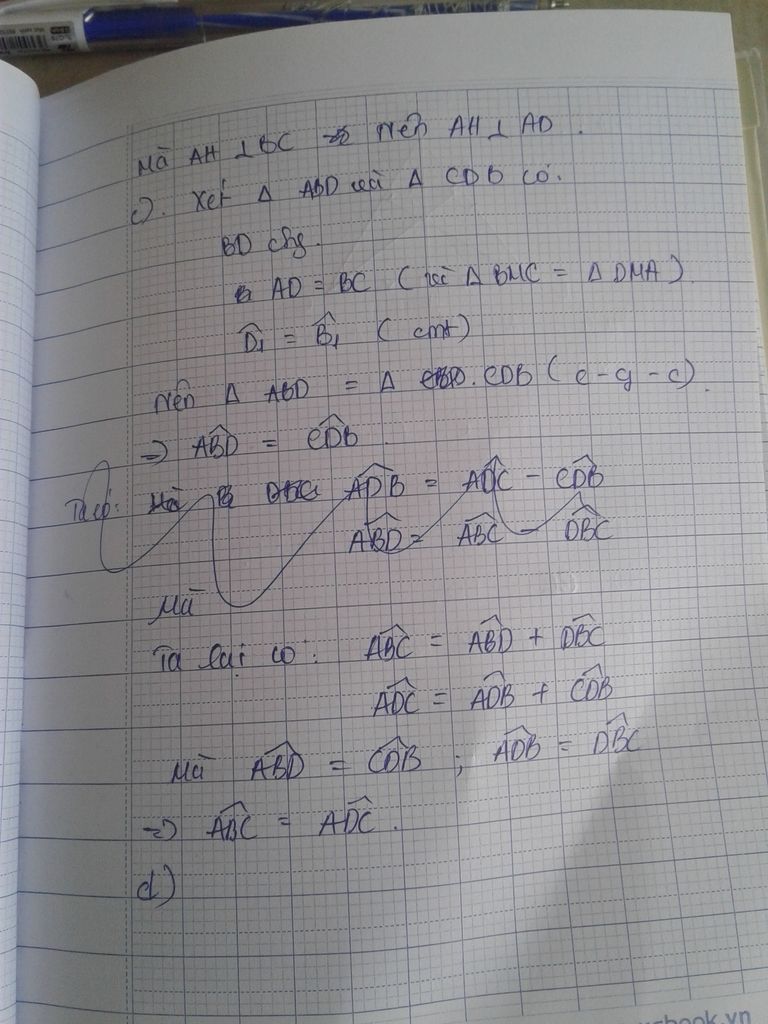 Mà AH ⊥ BC nên AH ⊥ AD.
c). Xét Δ ABD và Δ CDB có.
BD chg.
AD = BC ( vì Δ BMC = Δ DMA ).
D̂₁ = B̂₁ ( cmt)
Nên Δ ABD = Δ CDB ( c - g - c).
=> ABD̂ = CDB̂
Ta có: Mà ADB̂ = ADĈ - CDB̂
ABD̂ = ABĈ - DBĈ
Mà
Ta lại có: ABĈ = ABD̂ + DBĈ
ADĈ = ADB̂ + CDB̂
Mà ABD̂ = CDB̂ ; ADB̂ = DBĈ
=> ABĈ = ADĈ.
d)
book.vn